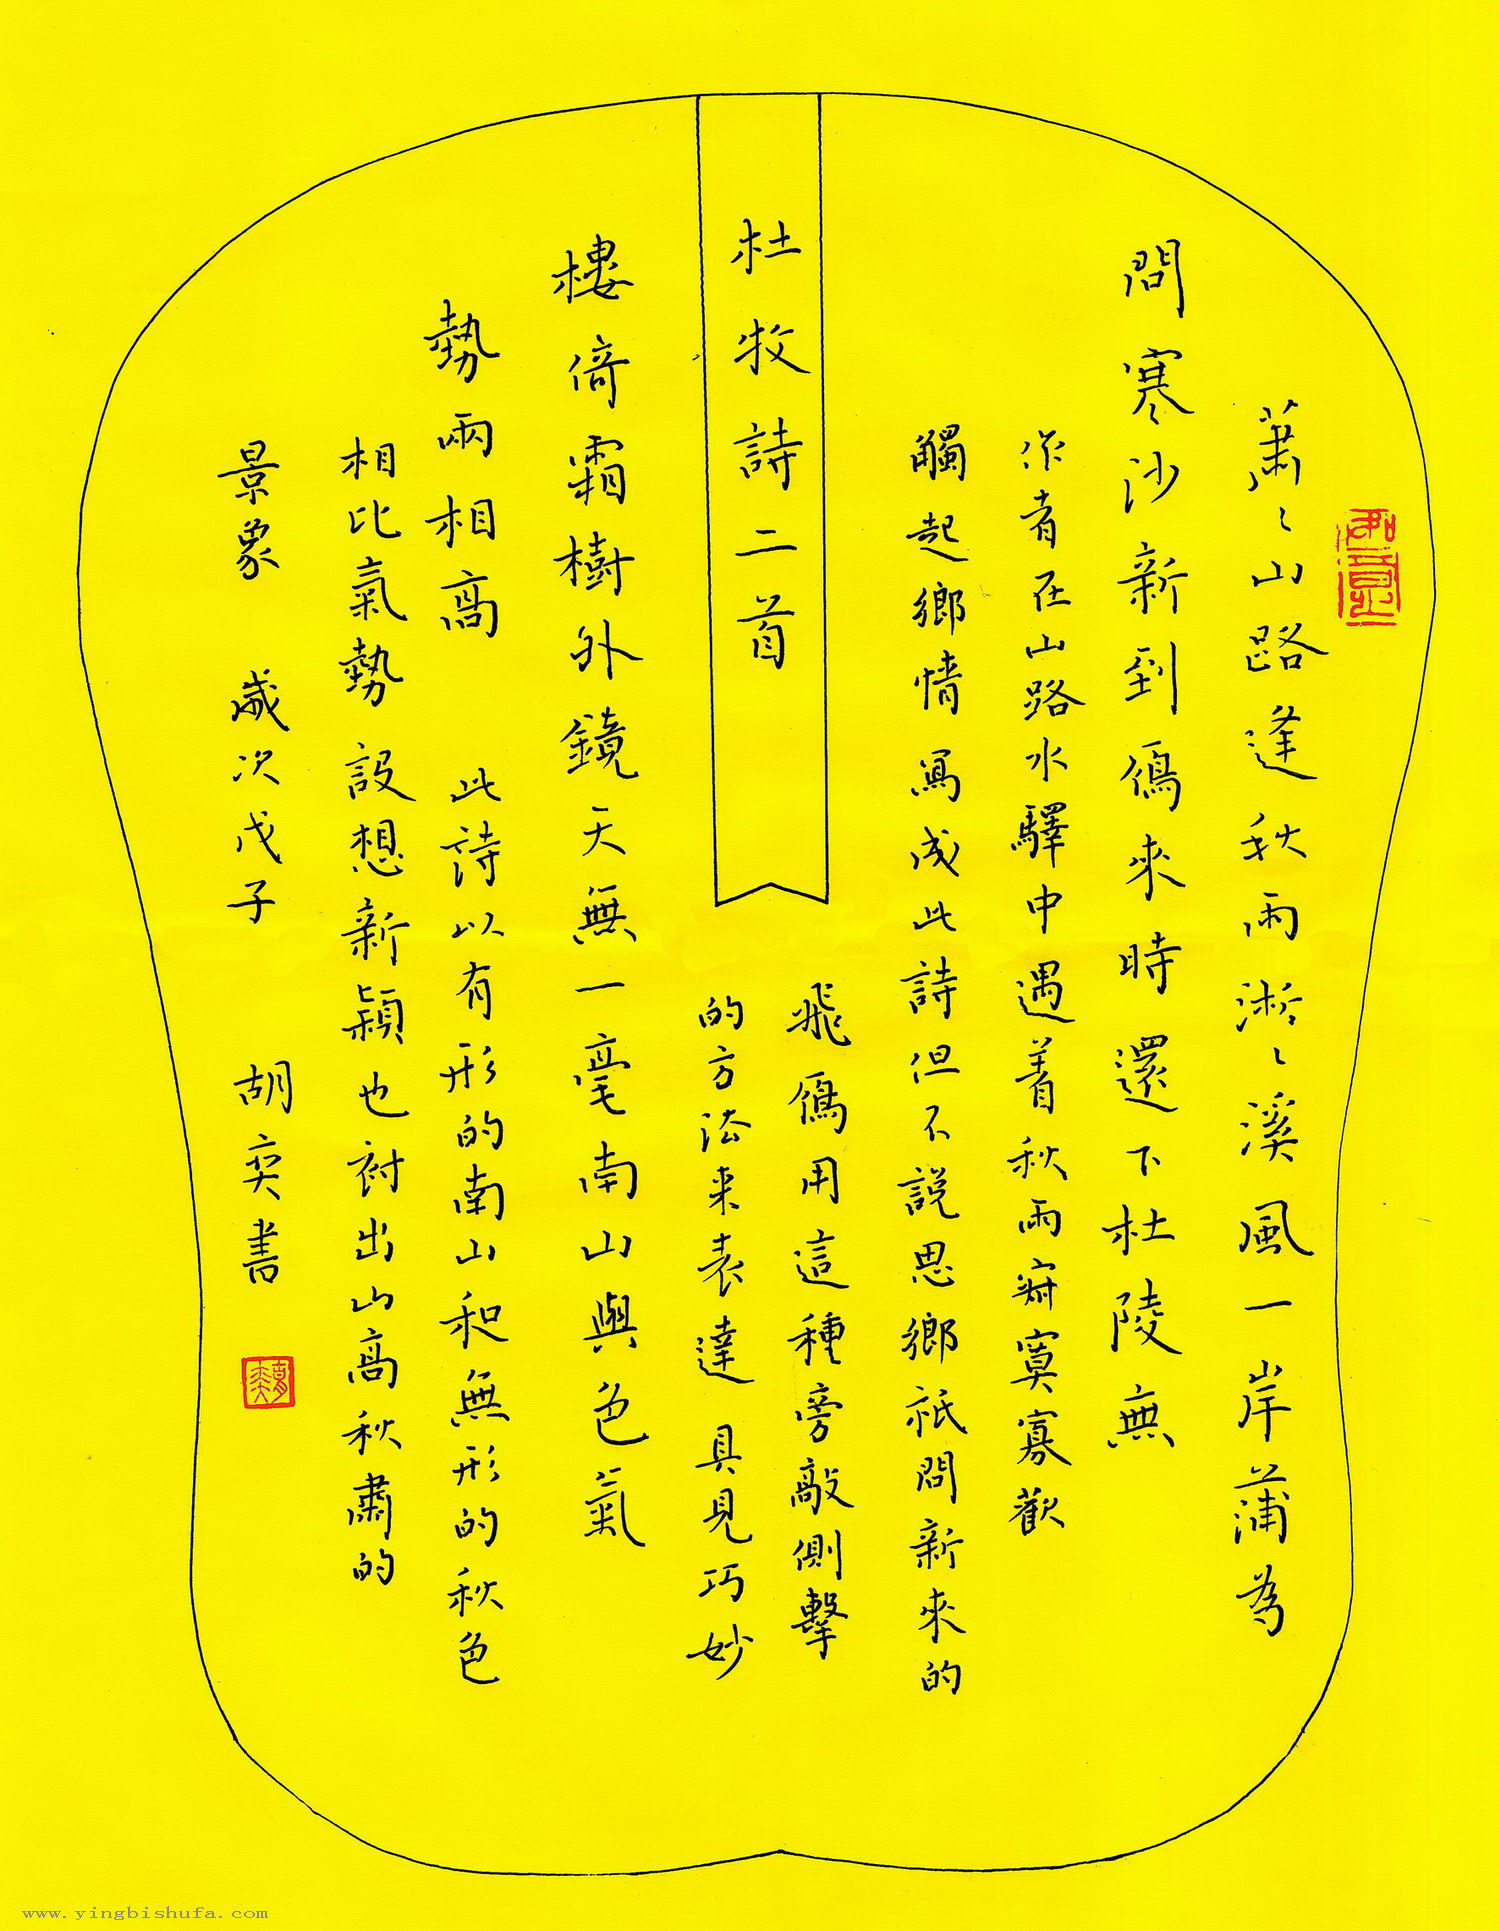 蕭〻山路逢秋雨淅〻溪風一岸蒲為
問寒沙新到鴈來時還下杜陵無
作者在山路水驛中遇着秋雨寂寞寡歡
觸起鄉情寫成此詩但不說思鄉祇問新來的
飛鴈用這種旁敲側擊
的方法来表達 具見巧妙
杜牧詩二首
樓倚霜樹外鏡天無一毫南山與色氣
勢兩相高 此詩以有形的南山和無形的秋色
相比氣勢設想新穎也襯出山高秋肅的
景象 歲次戊子 胡奕書
www.yingbishufa.com